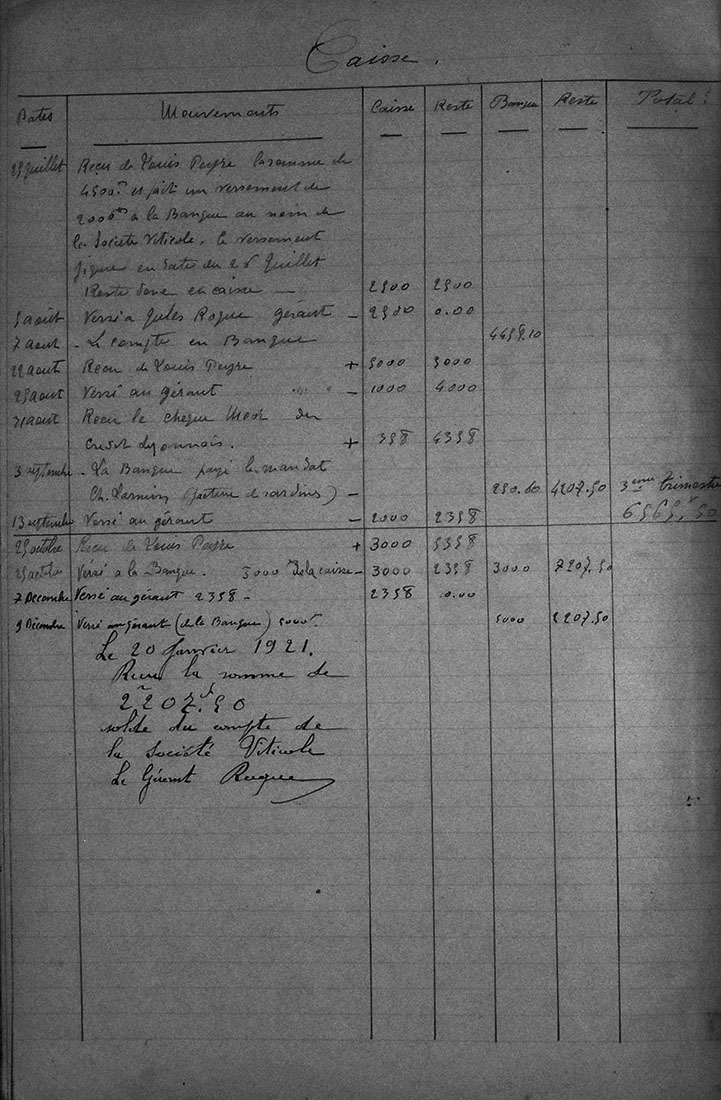 Caisse.
Dates Mouvements Caisse Reste Banque Reste Total
25 Juillet Recu de Louis Peyre la somme de
4500 et fait un versement de
2000 à la Banque au nom de
la Societe Viticole. le versement
figure en date du 26 Juillet
Reste donc en caisse — 2500 2500
5 aout Versé a Jules Rogue gérant — 2500 0.00
7 aout - Le compte en Banque 4458.10
22 aout Recu de Louis Peyre + 5000 5000
25 aout Versé au gérant " " — 1000 4.000
31 aout Recu le cheque du
Credit Lyonnais. + 358 4358
3 septembre - La Banque payé le mandat
Ch. (facture de sardines) — 250.60 4207.50 3eme trimestre
13 septembre Versé au gérant — 2000 2358 6565.50
25 octobre Recu de Louis Peyre + 3000 5358
25 octobre Versé a la Banque. 3000 de la caisse — 3000 2358 3000 7207.50
7 Decembre Versé au gérant 2358 - 2358 0.00
9 Décembre Versé au gérant (de la Banque) 5000 5000 2207.50
Le 20 Janvier 1921.
Recu la somme de
2207.50
solde du compte de
la Société Viticole
Le Gérant Rogue